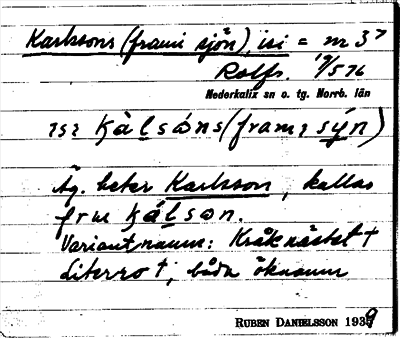 Karlssons (frami sjön), isi = nr 37
Rolfs. 19/5 76
Nederkalix sn o. tg. Norrb. län
ꞮsꞮ kàlsóns (framꞮ sýn)
Äg. heter Karlsson, kallas
fru kálson.
Variantnamn: Kråknästet †
Literro †, båda öknamn
RUBEN DANIELSSON 1939